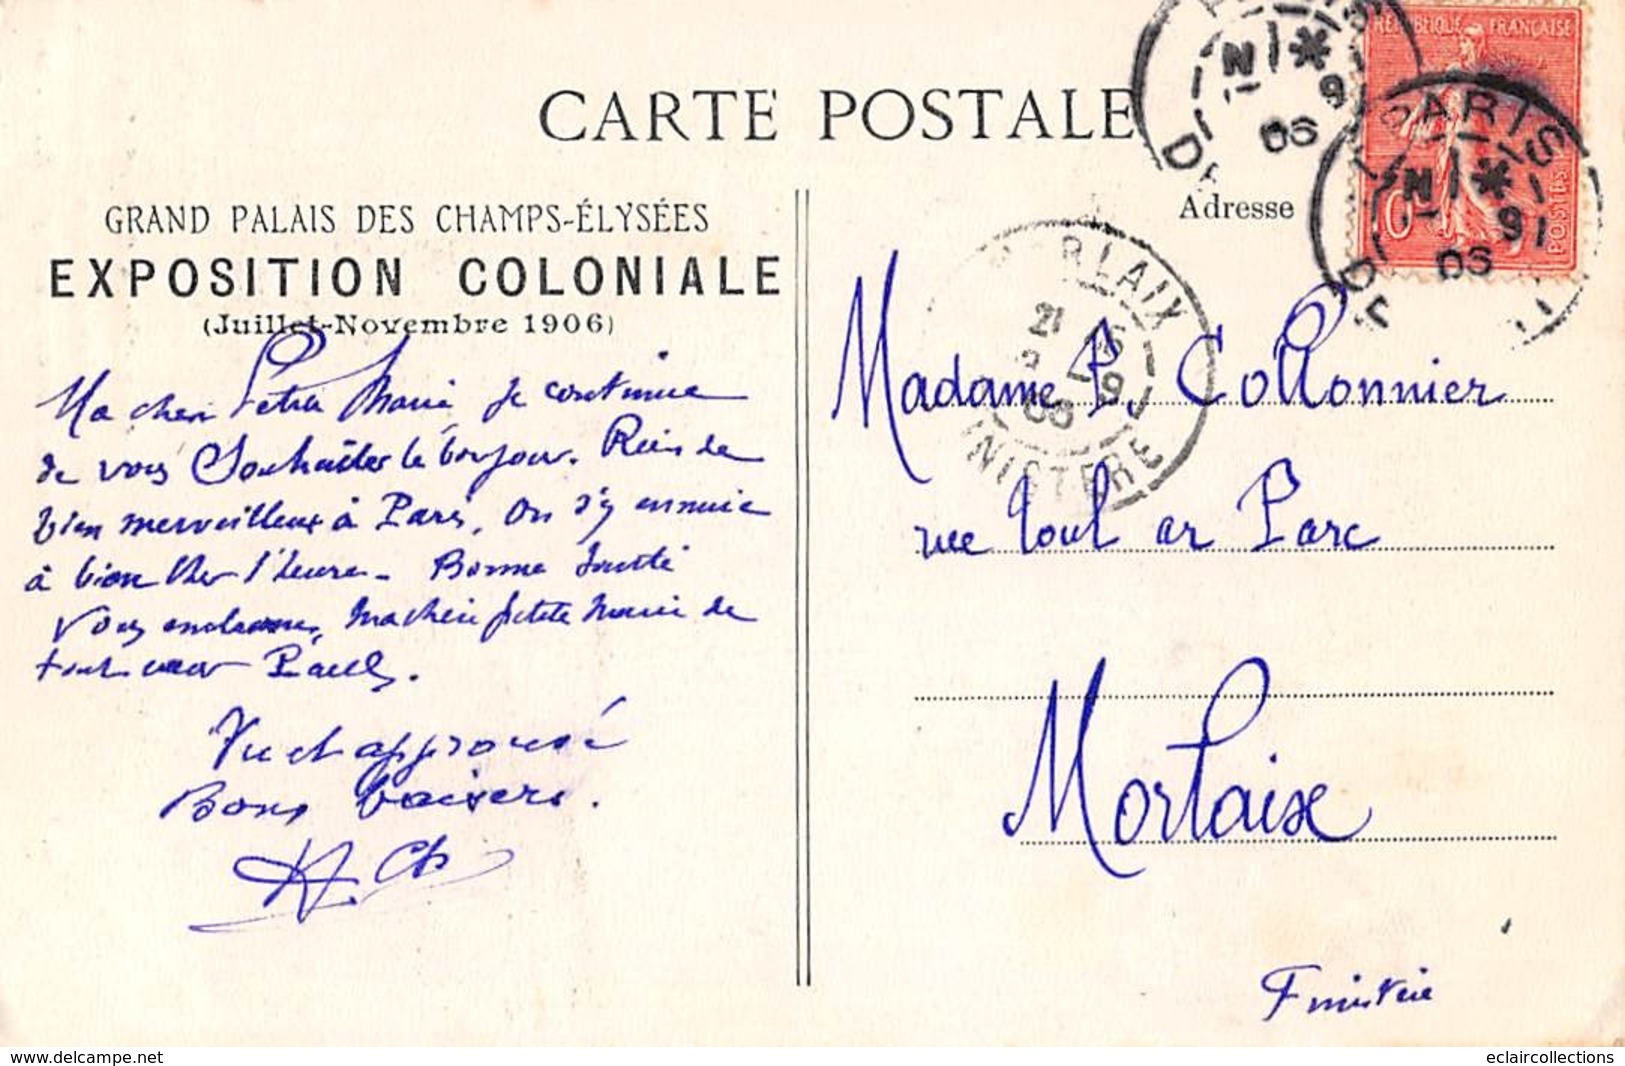 CARTE POSTALE
GRAND PALAIS DES CHAMPS-ÉLYSÉES
EXPOSITION COLONIALE
(Juillet-Novembre 1906)
Ma chère Petite Marie je continue
de vous souhaiter le bonjour. Rien de
bien merveilleux à Paris, on s'y ennuie
à bien cher l'heure - Bonne Santé
Vous embrasse, ma chère petite Marie de
tout cœur Paul.
Vu et approuvé
Bons baisers.
Adresse
Madame P. Collonnier
rue Poul ar Parc
Morlaix
Finistère
RÉPUBLIQUE FRANÇAISE
POSTES
PARIS
06
MORLAIX
21
9
06
FINISTERE
www.delcampe.net
eclaircollections